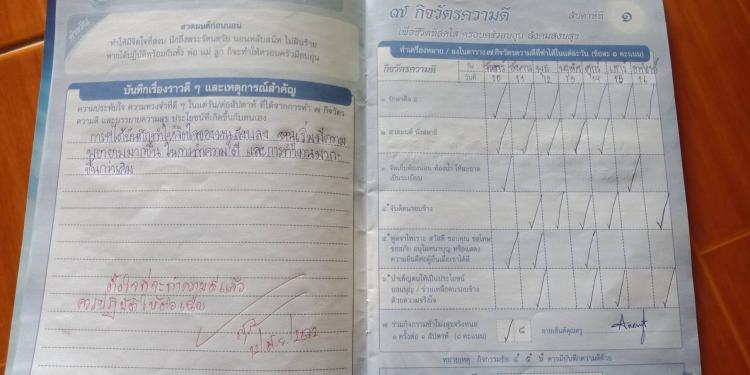 สวดมนต์ก่อนนอน
ทำให้มีจิตใจที่สงบ นึกถึงพระรัตนตรัย นอนหลับสนิท ไม่ฝันร้าย
หากได้ปฏิบัติพร้อมกันทั้ง พ่อ แม่ ลูก ก็จะทำให้ครอบครัวมีอบอุ่น
บันทึกเรื่องราวดี ๆ และเหตุการณ์สำคัญ
ความประทับใจ ความทรงจำที่ดี ๆ ในแต่วัน/ต่อสัปดาห์ ที่ได้จากการทำ ๗ กิจวัตร
ความดี และบรรยายความสุข ประโยชน์ที่เกิดขึ้นกับตนเอง
ตั้งใจที่จะทำความดีแล้ว
ควรปฏิบัติให้ต่อเนื่อง
๗ กิจวัตรความดี
สัปดาห์ที่ ๑
เพื่อชีวิตสดใส ครอบครัวอบอุ่น สังคมสงบสุข
ทำเครื่องหมาย / ลงในตาราง ๗ กิจวัตรความดีที่ทำได้ในแต่ละวัน (ข้อละ ๑ คะแนน)
กิจวัตรความดี
วัน จันทร์ อังคาร พุธ ศุกร์ เสาร์ อาทิตย์
วันที่ 10 11 12 13 14 15 16
๑ รักษาศีล ๕
๒ สวดมนต์ นั่งสมาธิ
๓ จัดเก็บห้องนอน ห้องน้ำ ให้สะอาด
เป็นระเบียบ
๔ จับดีคนรอบข้าง
๕ พูดจาไพเราะ สวัสดี ขอบคุณ ขอโทษ
ขออภัย อนุโมทนาบุญ หรือแสดง
ความยินดีต่อผู้อื่นเมื่อเขาได้ดี
๖ บำเพ็ญตนให้เป็นประโยชน์
ออมบุญ / ช่วยเหลือคนรอบข้าง
ด้วยความจริงใจ
๗ ร่วมกิจกรรมชั่วโมงสุขจริงหนอ
๑ ครั้งต่อ ๑ สัปดาห์ (๘ คะแนน)
๘
ลายเซ็นต์คุณครู
หมายเหตุ : กิจกรรมข้อ ๔ ๕ ๖ ควรมีบันทึกความดีด้วย